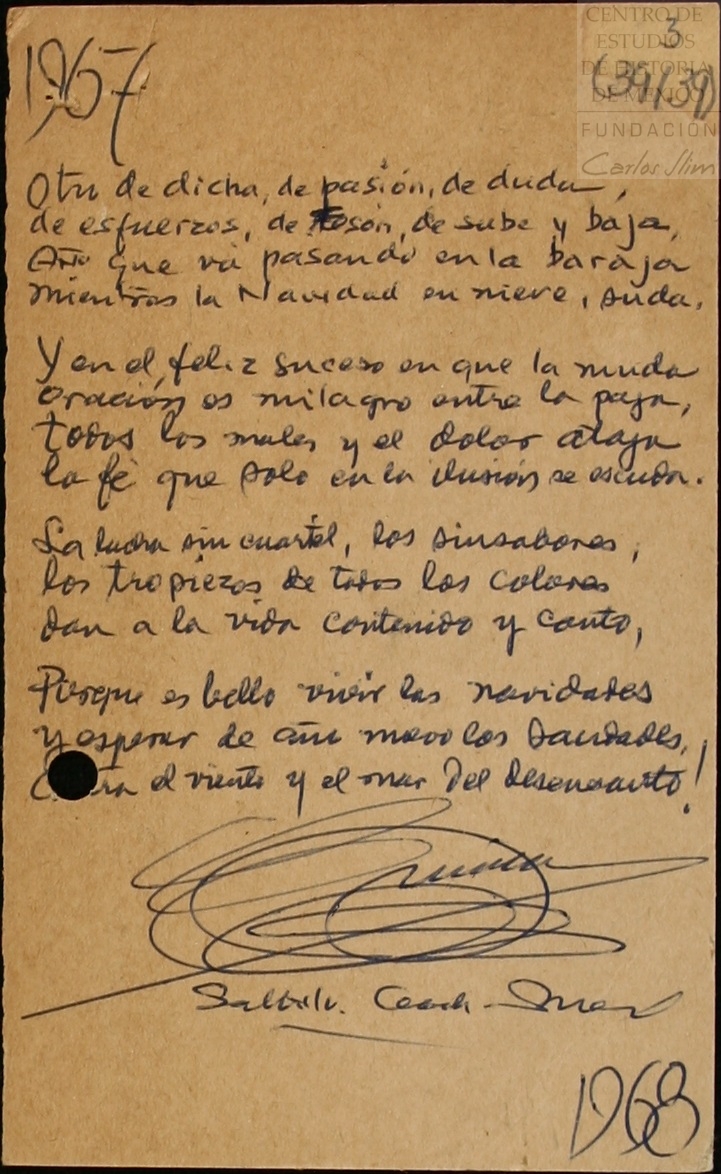 CENTRO DE
ESTUDIOS
DE HISTORIA
DE MÉXICO
FUNDACIÓN
Carlos Slim
3
(39/39)
1967
Otro de dicha, de pasión, de duda,
de esfuerzos, de tesón, de sube y baja,
Año que va pasando en la baraja
mientras la Navidad en nieve, suda.
Y en el feliz suceso en que la muda
oración es milagro entre la paja,
todos los males y el dolor ataja
la fé que solo en la ilusión se escuda.
La lucha sin cuartel, los sinsabores,
los tropiezos de todos los colores
dan a la vida contenido y canto,
Porque es bello vivir las navidades
y esperar de año nuevo los saudades,
el viento y el mar del desencanto!
Saltillo. Coah.
1968